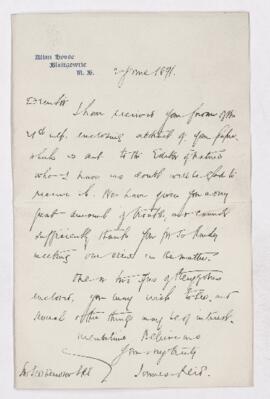 Allan House
Blairgowrie
N. B.
2 June 1891.
Dear Sir
I have received your favour of the
enclosing abstract of your paper
which is sent to the Editor of Nature
who I have no doubt will be glad to
receive it. We have given you a very
great amount of trouble, and cannot
sufficiently thank you for so kindly
meeting our views in the matter.
enclosed, you may wish to see, and
several of the things may be of interest.
Believe me
Yours very truly
James Reid.